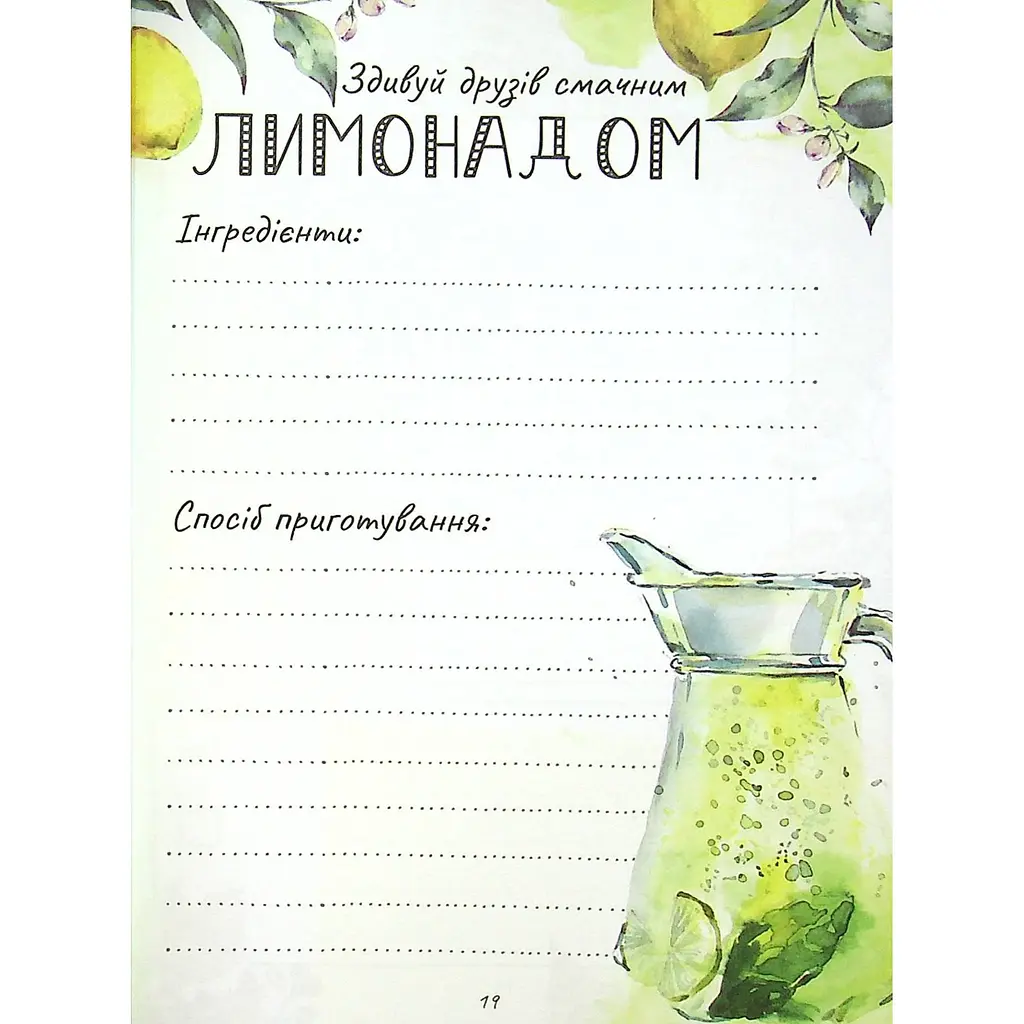 Здивуй друзів смачним
ЛИМОНАДОМ
Інгредієнти:
Спосіб приготування:
19